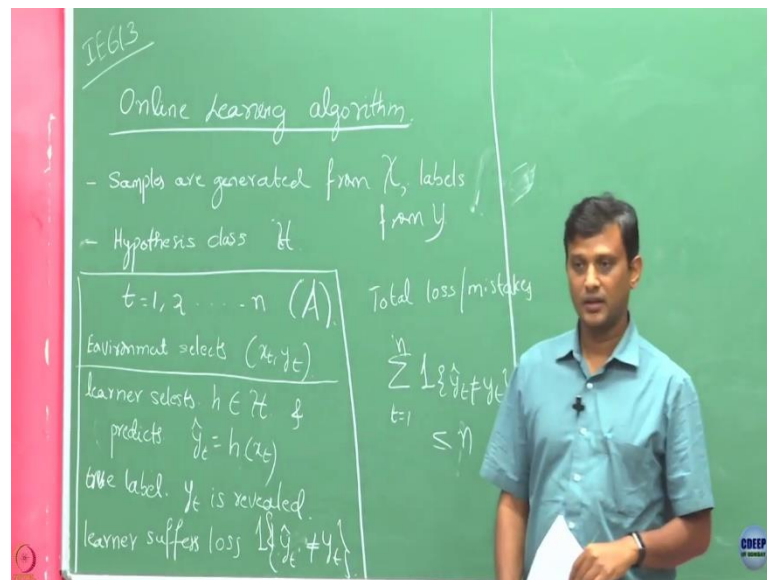 IE613
Online Learning algorithm.
- Samples are generated from X, labels
from Y
- Hypothesis class H
t=1, 2 ..... n (A)
Environment selects (x_t, y_t)
learner selects h ∈ H &
predicts ŷ_t = h(x_t)
true label y_t is revealed
learner suffers loss 1{ŷ_t ≠ y_t}
Total loss/mistakes
n
∑ 1{ŷ_t ≠ y_t}
t=1
≤ n
CDEEP
IIT BOMBAY